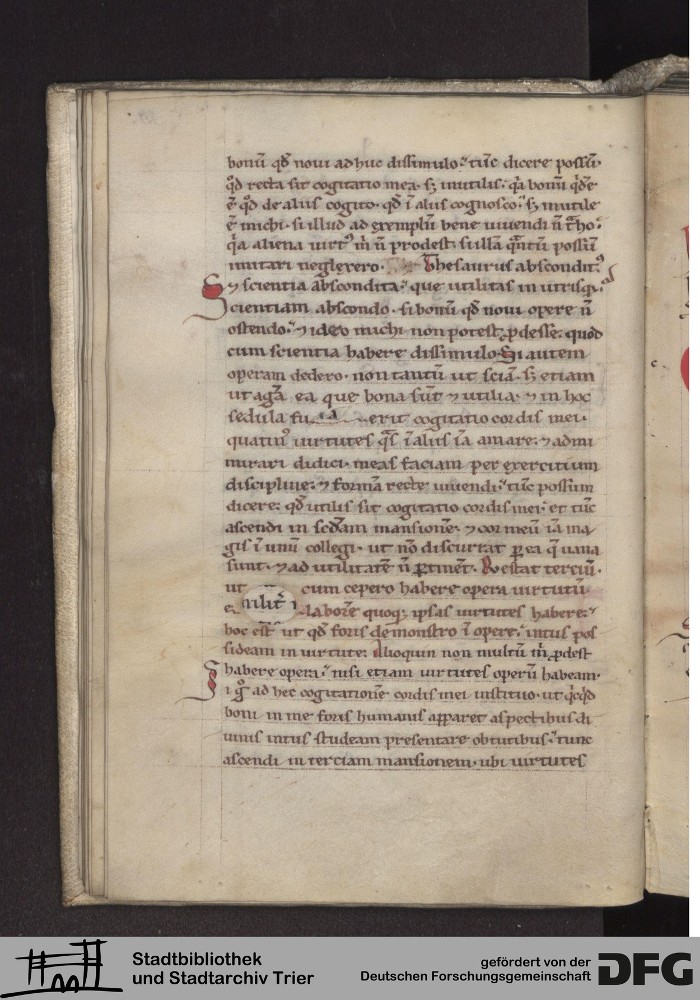 bonū qd̄ noui adhuc dissimulo· tūc dicere possū·
qd̄ recta sit cogitatio mea· sꝫ inutilis· qa bonū qd̄ē
ē qd̄ de aliis cogito· qd̄ ī aliis cognosco· sꝫ inutile
ē michi· si illud ad exemplū bene uiuendi n̄ t̄ho·
qa aliena uirtꝰ m̄ n̄ prodest· si illā qntū possū
imitari neglexero· Thesaurus absconditꝰ
⁊ scientia abscondita· que utilitas in utrisqꝫ·
Scientiam abscondo· si bonū qd̄ noui opere n̄
ostendo· ⁊ ideo michi non potest ꝓdesse· quod
cum scientia habere dissimulo· Si autem
operam dedero· non tantū ut sciā· sꝫ etiam
ut agā ea que bona sūt ⁊ utilia· ⁊ in hoc
sedula fu erit cogitatio cordis mei·
quatinꝰ uirtutes qs ī aliis iā amare· ⁊ admi
mirari didici· meas faciam per exercitium
discipline· ⁊ formā recte uiuendi· tūc possum
dicere· qd̄ utilis sit cogitatio cordis mei· et tūc
ascendi in scd̄am mansionē· ⁊ cor meū iā ma
gis ī unū collegi· ut nō discurrat ꝑ ea q̄ uana
sunt· ⁊ ad utilitatē n̄ ꝑtinēt· Restat terciū·
ut cum cepero habere opera uirtutū
laborē quoqꝫ ipsas uirtutes habere·
hoc est ut qd̄ foris demonstro ī opere· intus pos
sideam in uirtute· Alioquin non multū m̄ ꝓdest
habere opera· nisi etiam uirtutes operū habeam·
Si gͦ ad hec cogitationē cordis mei instituo· ut qcqd
boni in me foris humanis apparet aspectibus di
uinis intus studeam presentare obtutibus· tunc
ascendi in terciam mansionem· ubi uirtutes
Stadtbibliothek
und Stadtarchiv Trier
gefördert von der
Deutschen Forschungsgemeinschaft
DFG